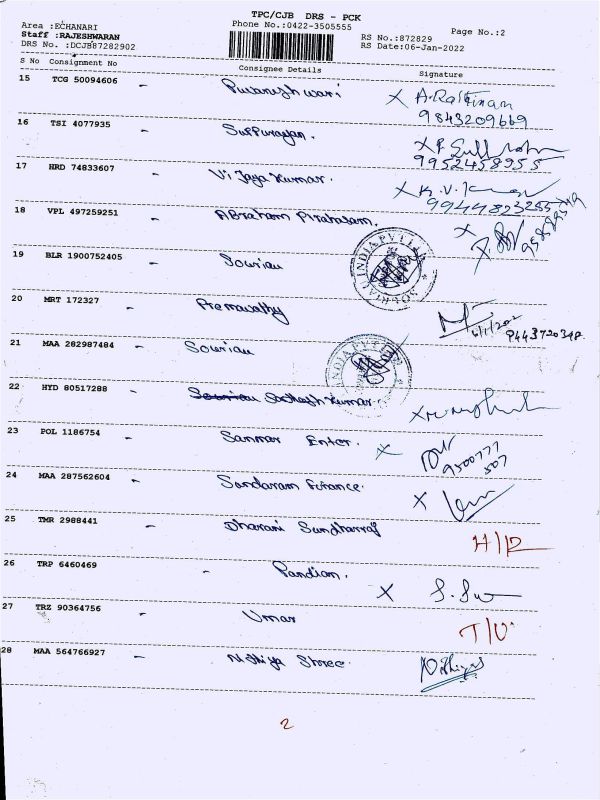 TPC/CJB DRS - PCK
Area :ECHANARI
Phone No.:0422-3505555
Page No.:2
Staff :RAJESHWARAN
RS No.:872829
DRS No. :DCJB87282902
RS Date:06-Jan-2022
S No Consignment No Consignee Details Signature
15 TCG 50094606 - Puvaneshwari X A. Rathinam
9843209669
16 TSI 4077935 - Suppurayan. X
9952458955
17 HRD 74833607 - Vijaya Kumar. X K.V.
9944823255
18 VPL 497259251 - Abraham Pirabasam. X
19 BLR 1900752405 - Souriau
20 MRT 172327 - Premavathy
21 MAA 282987484 - Souriau
22 HYD 80517288 - Souriau Sathesh Kumar. X
23 POL 1186754 - Sanmar Enter. X
9500777
507
24 MAA 287562604 - Sundaram Finance. X
25 TMR 2988441 - Dharani Sundharraj H/R
26 TRP 6460469 - Pandian. X
27 TRZ 90364756 - Umar T/V
28 MAA 564766927 - Nithiya Shree. Nithiya
2